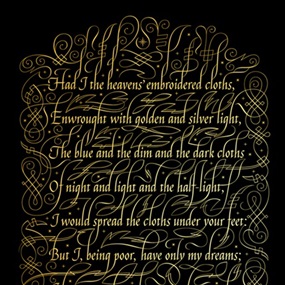 Had I the heavens' embroidered cloths,
Enwrought with golden and silver light,
The blue and the dim and the dark cloths
Of night and light and the half-light,
I would spread the cloths under your feet:
But I, being poor, have only my dreams;